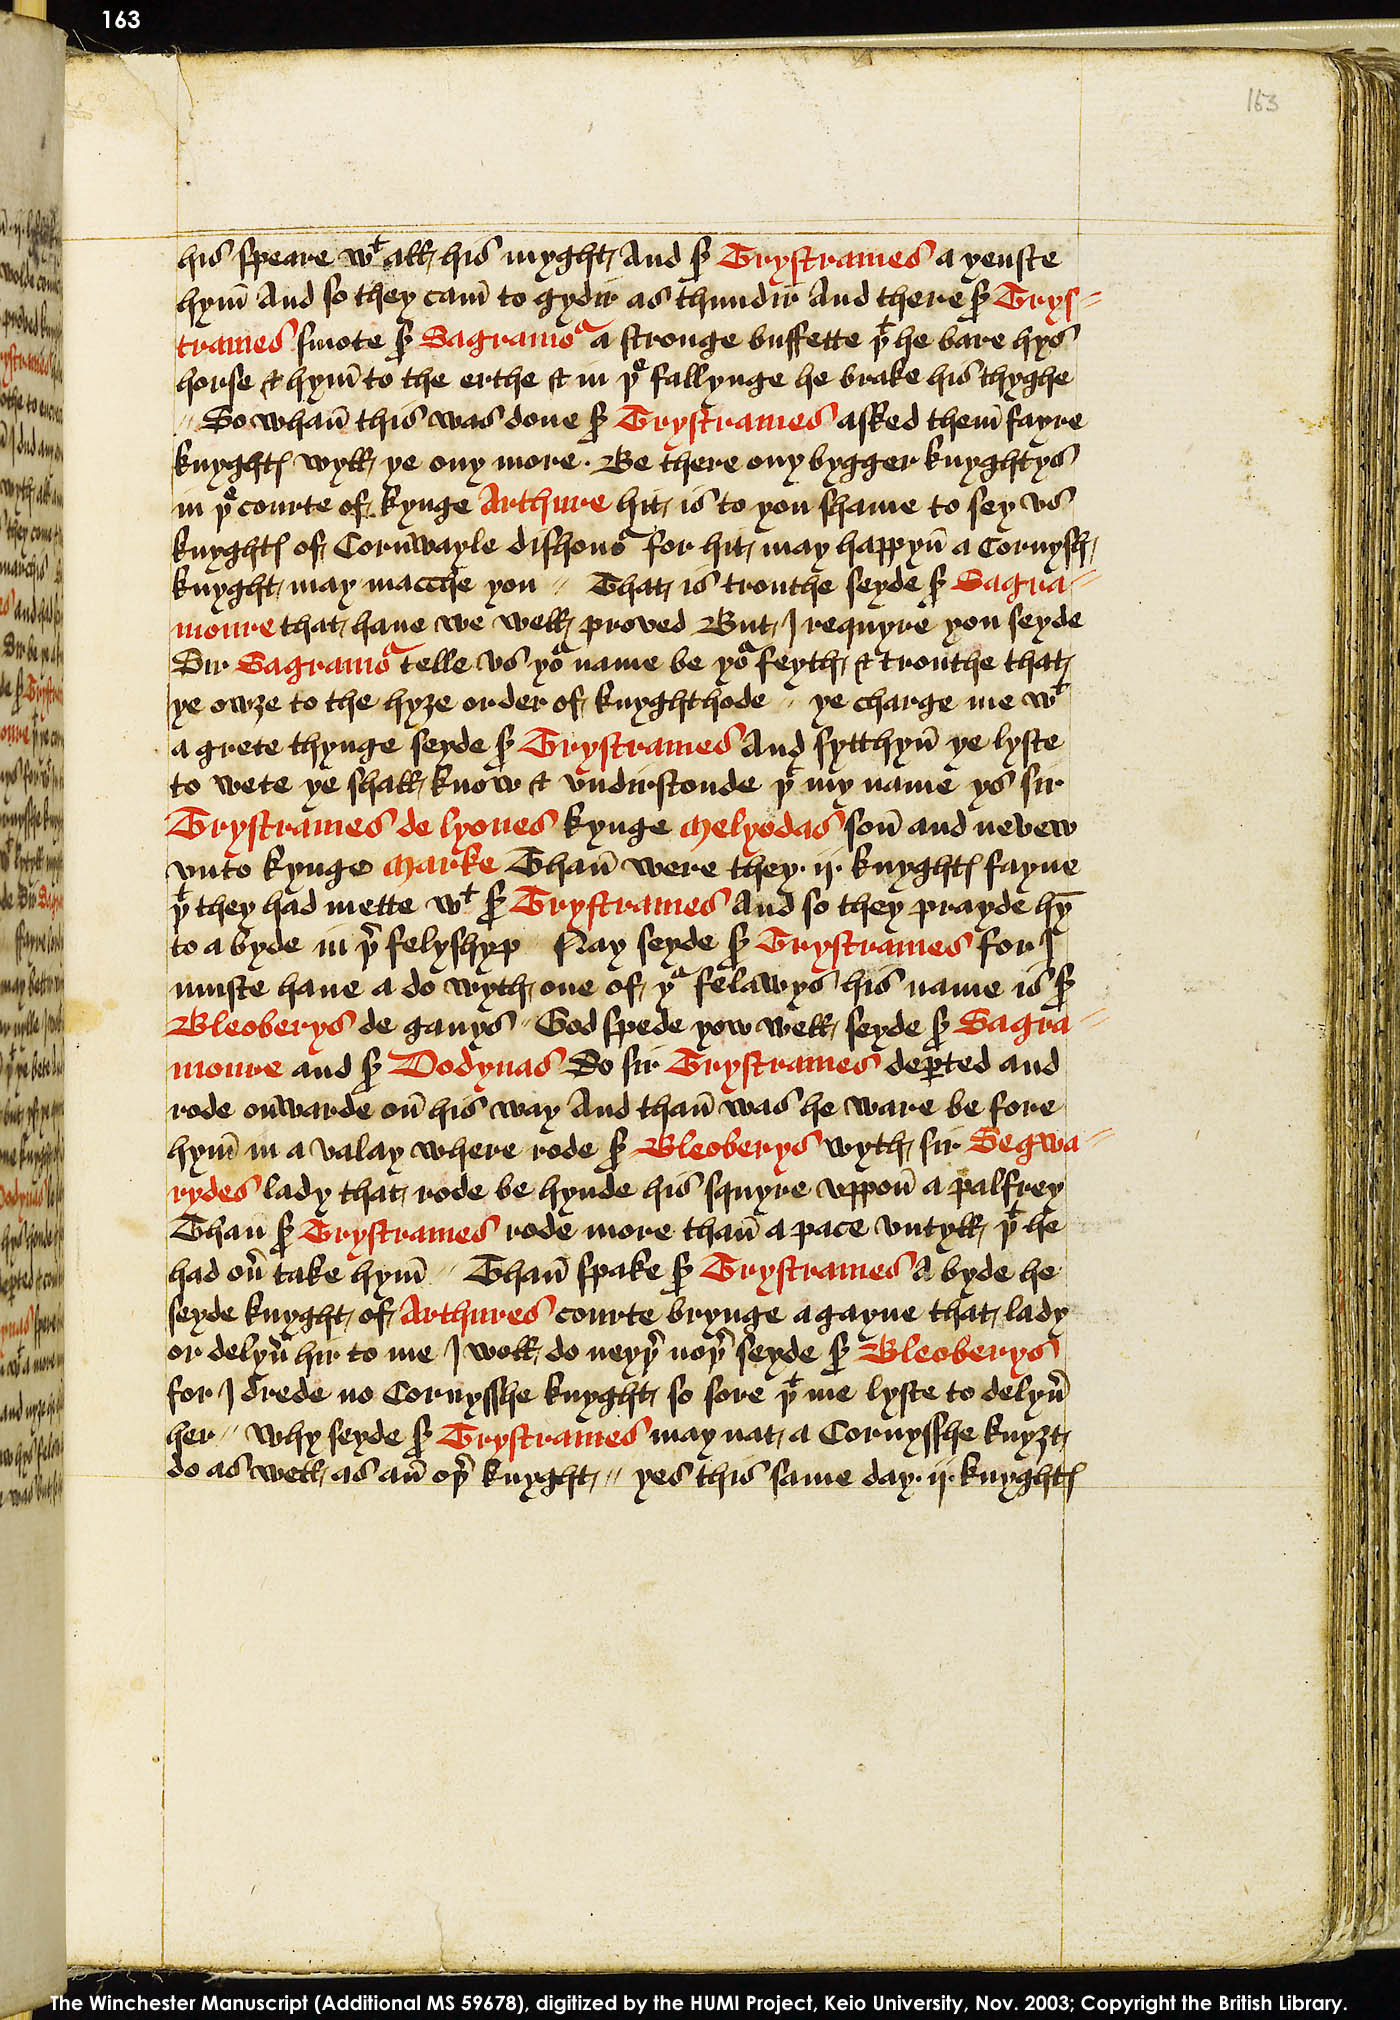 163
163
his speare wᵗ all his myght And sʳ Trystrames a yenste
hym̄ And so they cam̄ to gydir as thundir And there sʳ Trys=
trames smote sʳ Sagramoʳ a stronge buffette þᵗ he bare hys
horse & hym̄ to the erthe & in þᵉ fallynge he brake his thyghe
〃 So whan̄ this was done sʳ Trystrames asked them̄ fayre
knyghtꝭ wyll ye ony more · Be there ony bygger knyghtys
in þᵉ courte of kynge Arthure hit is to you shame to sey vs
knyghtꝭ of Corn̄wayle dishonoʳ for hit may happyn̄ a Cornysh
knyght may macche you 〃 That is trouthe seyde sʳ Sagra=
moure that haue we well proved But I requyre you seyde
Sir Sagramoʳ telle vs yoʳ name be yoʳ feyth & trouthe that
ye owȝe to the hyȝe order of knyghthode 〃 ye charge me wᵗ
a grete thynge seyde sʳ Trystrames And sytthyn̄ ye lyste
to wete ye shall know & vndirstonde þᵗ my name ys sir
Trystrames de lyones kynge Melyodas son̄ and nevew
vnto kynge Marke Than̄ were they · ij · knyghtꝭ fayne
þᵗ they had mette wᵗ sʳ Trystrames And so they prayde hȳ
to a byde in þʳ felyshyp Nay seyde sʳ Trystrames for I
muste haue a do wyth one of yʳ felawys his name is sʳ
Bleoberys de ganys 〃 God spede yow well seyde sʳ Sagra=
moure and sʳ Dodynas So sir Trystrames deꝑted and
rode on̄warde on̄ his way And than̄ was he ware be fore
hym̄ in a valay where rode sʳ Bleoberys wyth sir Segwa=
rydes lady that rode be hynde his squyre vppon̄ a palfrey
Than̄ sʳ Trystrames rode more than̄ a pace vntyll þᵗ he
had oū take hym̄ 〃 Than̄ spake sʳ Trystrames A byde he
seyde knyght of Arthures courte brynge agayne that lady
or delyū hir to me I woll do neyþʳ noþʳ seyde sʳ Bleoberys
for I drede no Cornysshe knyght so sore þᵗ me lyste to delyū
her 〃 why seyde sʳ Trystrames may nat a Cornysshe knyȝt
do as well as an̄ oþʳ knyght 〃 yes this same day · ij · knyghtꝭ
The Winchester Manuscript (Additional MS 59678), digitized by the HUMI Project, Keio University, Nov. 2003; Copyright the British Library.